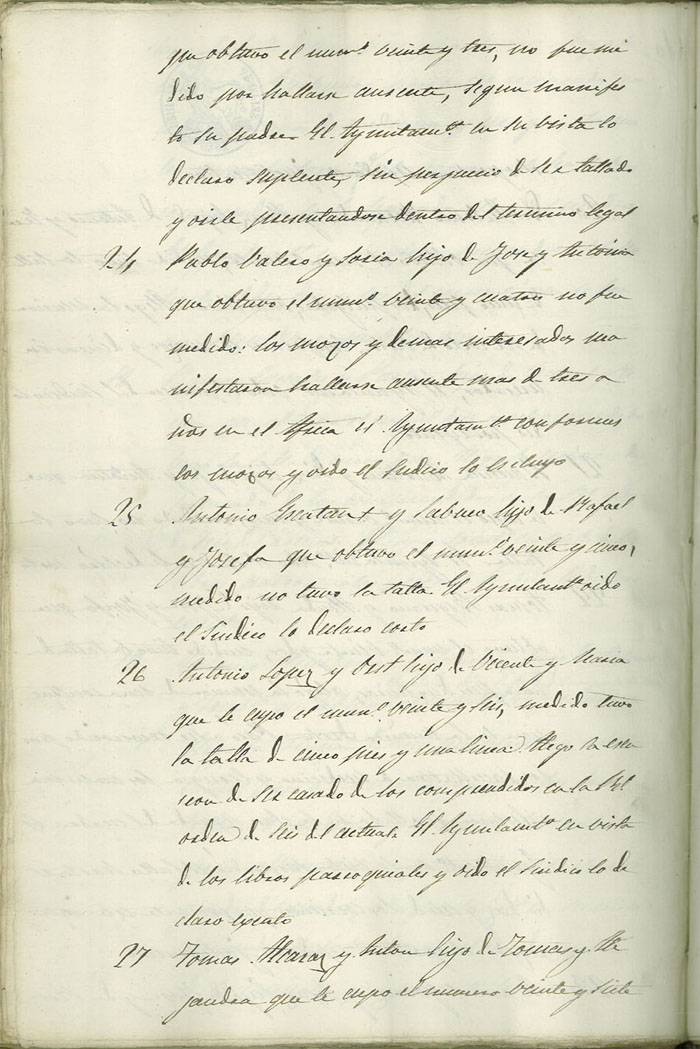 que obtuvo el num.º veinte y tres, no fue me
dido por hallarse ausente, segun manifes
tó su padre. El Ayuntam.º en su vista lo
declaro suplente, sin perjuicio de ser tallado
y oirle presentandose dentro del termino legal
24 Pablo Valero y Soria hijo de Jose y Antonia
que obtuvo el num.º veinte y cuatro no fue
medido: los mozos y demas interesados ma
nifestaron hallarse ausente mas de tres a
ños en el Africa el Ayuntam.º conformes
los mozos y oido el Sindico lo escluyo
25 Antonio y Sabuco hijo de Rafael
y Josefa que obtuvo el num.º veinte y cinco,
medido no tuvo la talla. El Ayuntam.º oido
el Sindico lo declaro corto
26 Antonio Lopez y hijo de Vicente y Maria
que le cupo el num.º veinte y seis, medido tuvo
la talla de cinco pies y una linea. Alego la esen
cion de ser casado de los comprendidos en la Rl
orden de seis del actual. El Ayuntam.º en vista
de los libros parroquiales y oido el Sindico lo de
claro esento
27 Tomas Alcaraz y Anton hijo de Tomas y Ale
jandra que le cupo el numero veinte y siete